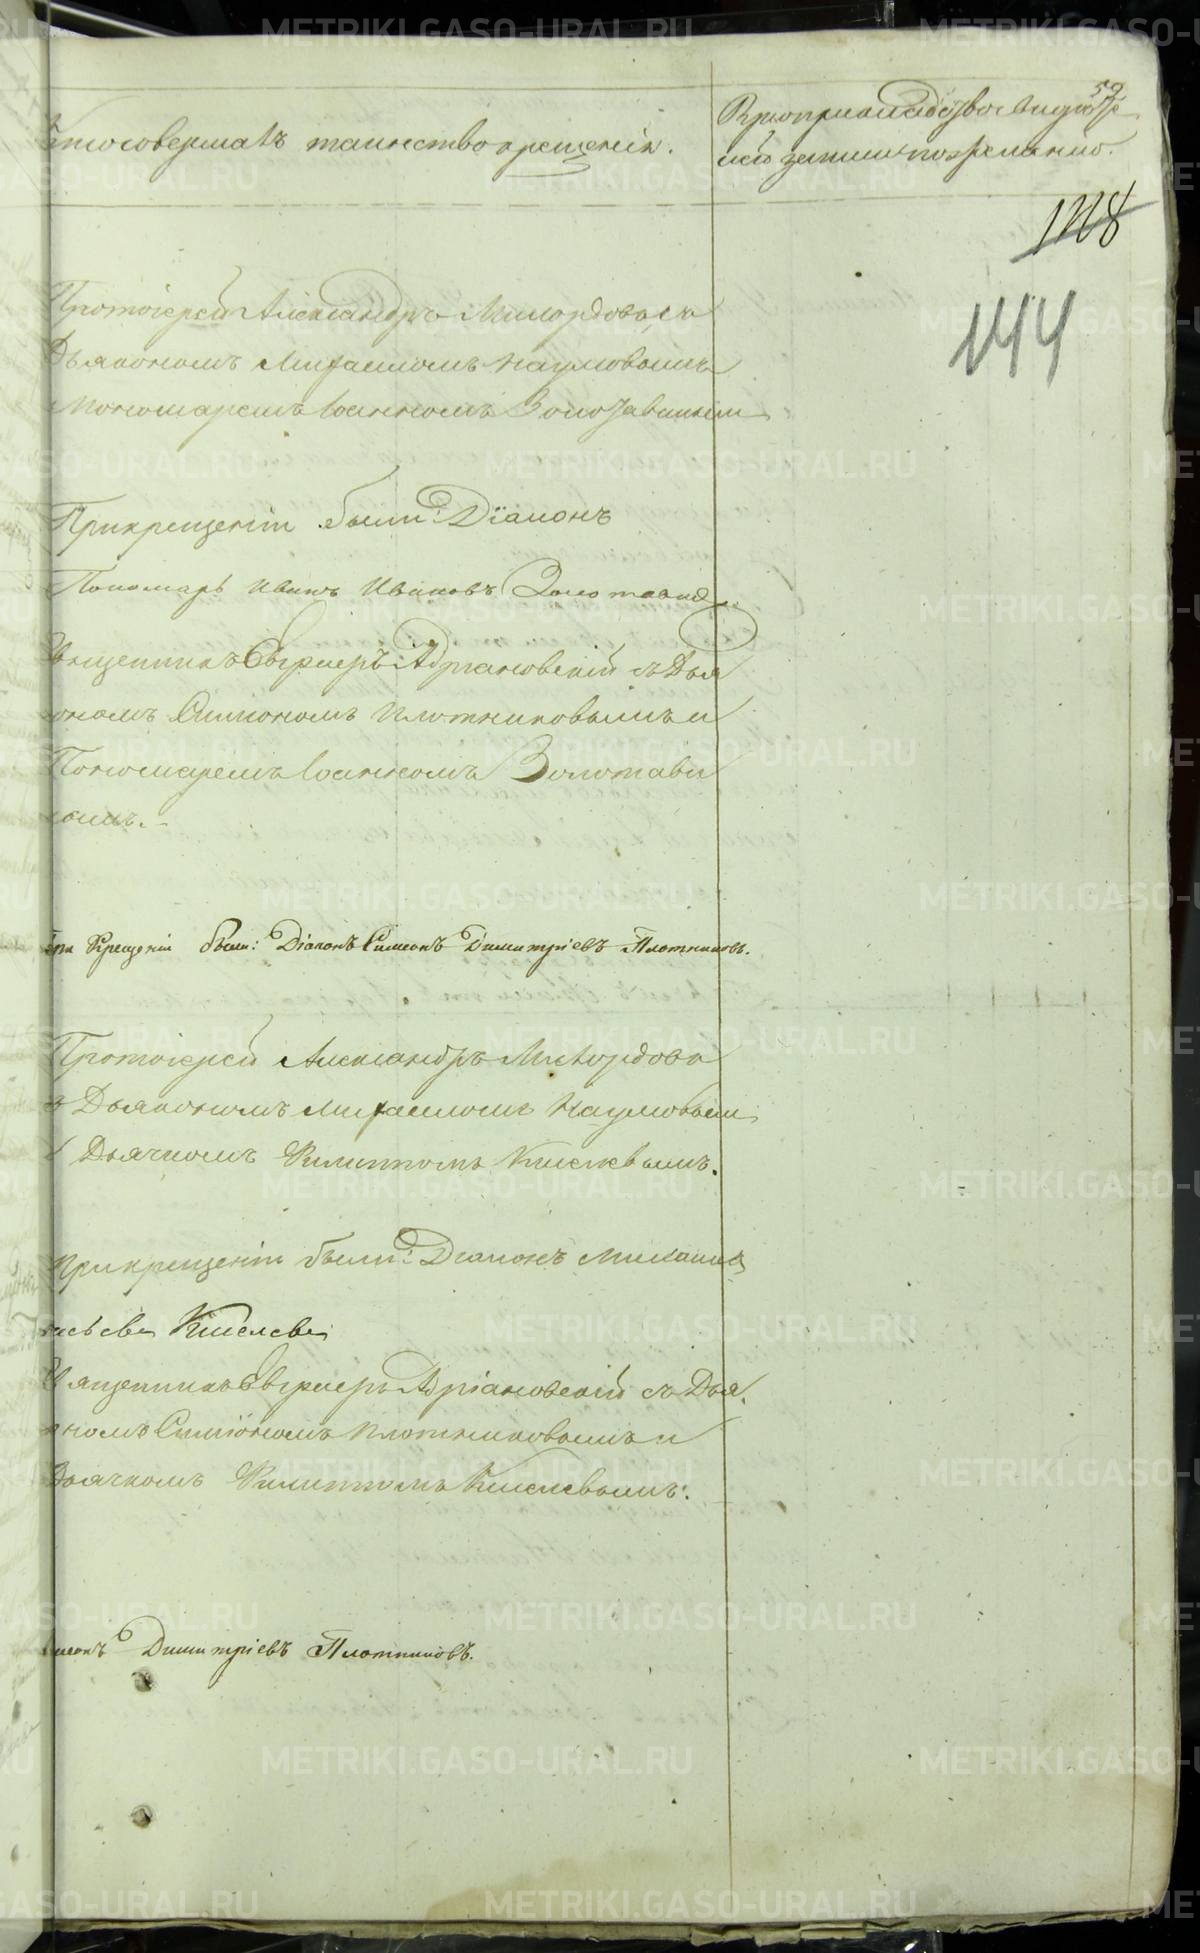 59
Кто совершалъ таинство крещенія.
Рукоприкладство свидѣте
лей записи по желанію.
1128
144
Протоіерей Александръ Милордовъ съ
Дьякономъ Михаиломъ Наумовымъ
Пономаремъ Іоанномъ Золотавинымъ
При крещеніи были: Діаконъ
Пономарь Иванъ Ивановъ Золотавинъ
Священникъ Евгеній Адріановскій съ Дья
кономъ Симеономъ Плотниковымъ и
Пономаремъ Іоанномъ Золотави
нымъ.
При Крещеніи были: Діаконъ Симеонъ Димитріевъ Плотниковъ.
Протоіерей Александръ Милордовъ
съ Дьякономъ Михаиломъ Наумовым
Дьячкомъ Филиппомъ Киселевымъ.
При крещеніи были: Діаконъ Михаилъ
Киселевъ
Священникъ Адріановскій съ Дья
кономъ Симеономъ Плотниковымъ и
Дьячкомъ Филиппомъ Киселевымъ.
Симеонъ Димитріевъ Плотниковъ.
METRIKI.GASO-URAL.RU